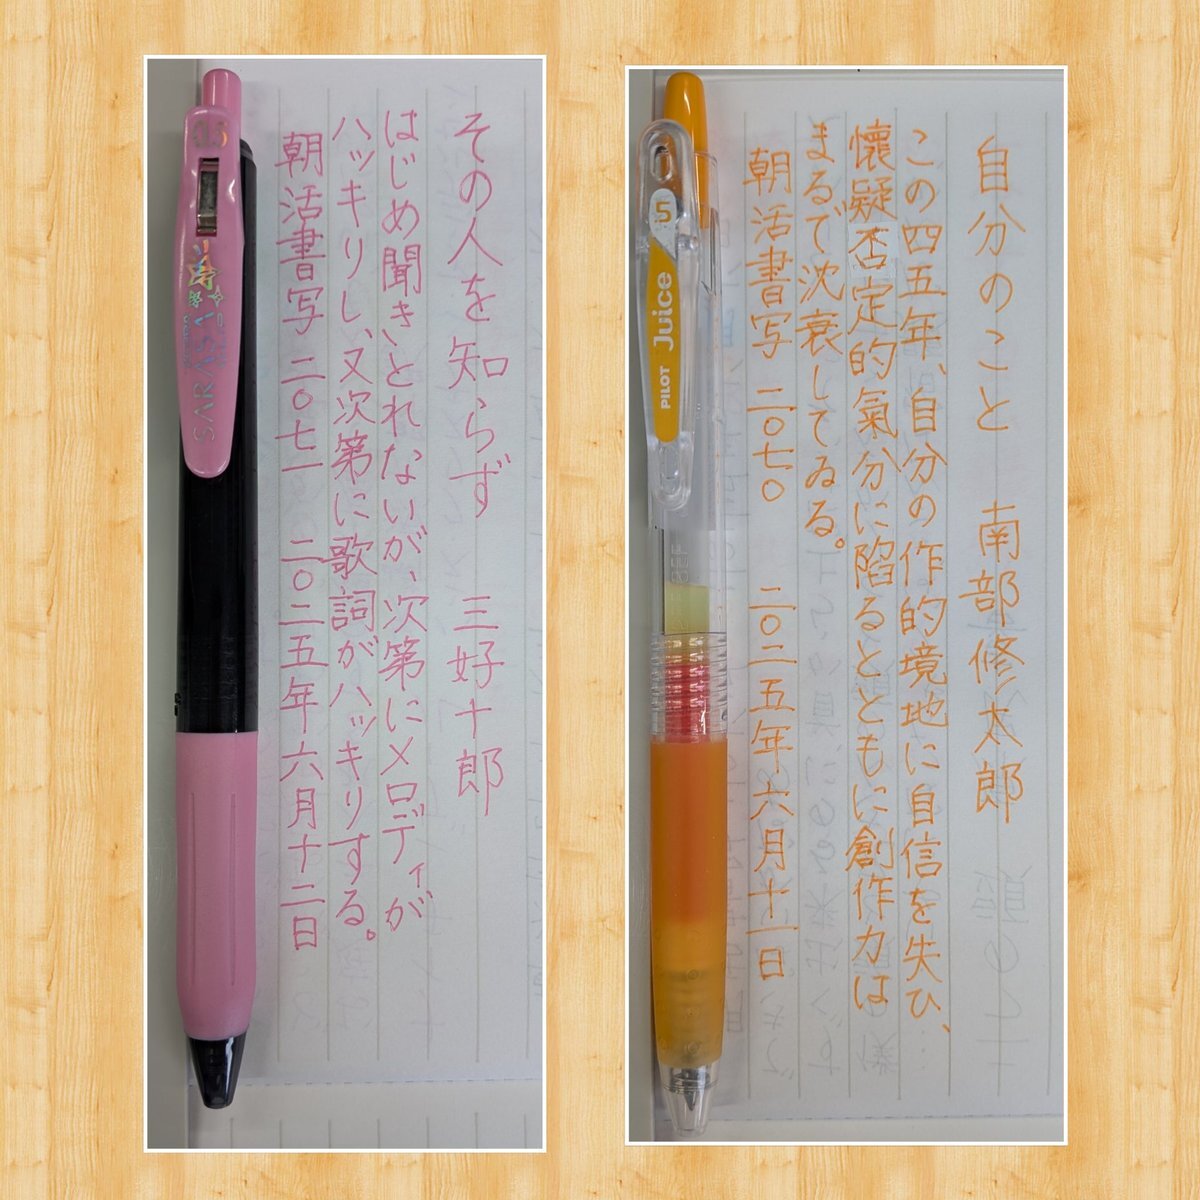 その人を知らず 三好十郎
はじめ聞きとれないが、次第にメロディが
ハッキリし、又次第に歌詞がハッキリする。
朝活書写 二〇七一 二〇二五年六月十二日
0.5
SARASA
自分のこと 南部修太郎
この四五年、自分の作的境地に自信を失ひ、
懐疑否定的氣分に陥るとともに創作力は
まるで沈衰してゐる。
朝活書写 二〇七〇 二〇二五年六月十一日
5
PILOT Juice